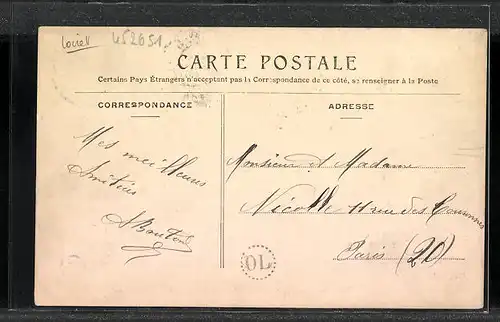 Loiret
452651
CARTE POSTALE
Certains Pays Étrangers n'acceptant pas la Correspondance de ce côté, se renseigner à la Poste
CORRESPONDANCE
ADRESSE
Mes meilleures
Amitiés
Monsieur et Madame
Nicolle 11 rue des
Paris (20)
OL